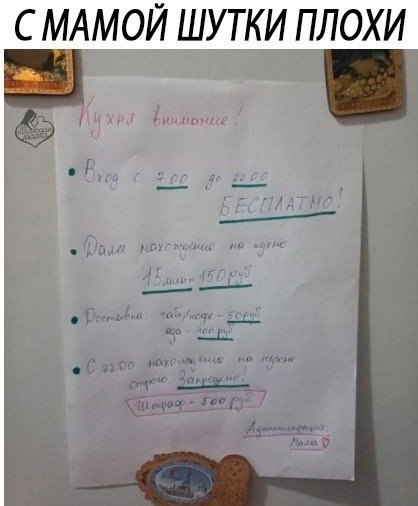 С МАМОЙ ШУТКИ ПЛОХИ
Кухня внимание!
• Вход с 7.00 до 22.00
БЕСПЛАТНО!
• Далее нахождение на кухне
15 мин = 150 руб
• Доставка: чай/кофе - 50 руб.
еда - 100 руб
• С 22.00 нахождение на кухне
строго Запрещено!
Штраф - 500 руб
Администрация:
Мама